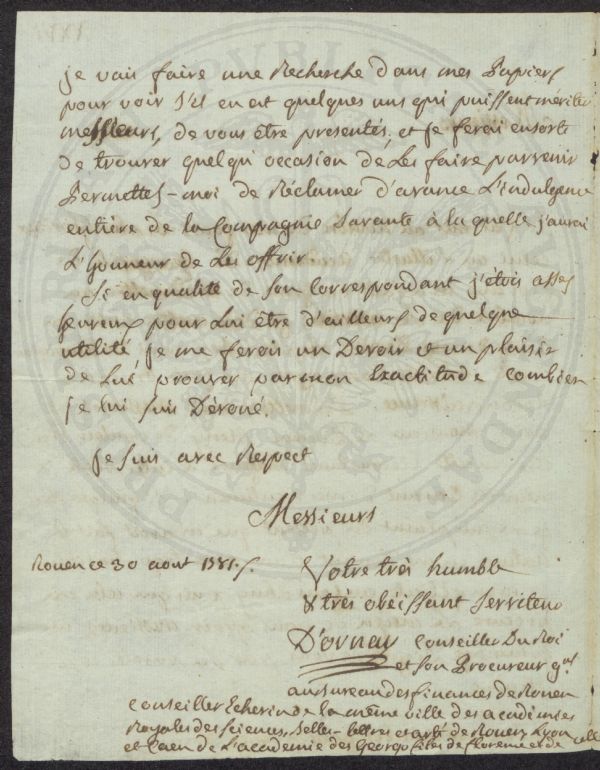 je vais faire une Recherche dans mes Papiers
pour voir s'il en est quelques uns qui puissent mériter
messieurs, de vous être presentés, et je ferai ensorte
de trouver quelqu'occasion de Les faire parvenir
Permettes-moi de Réclamer d'avance L'indulgence
entière de la Compagnie Savante à la quelle j'aurai
L'honneur de Les offrir
Si en qualité de son Correspondant j'étois asses
heureux pour Lui être d'ailleurs de quelque
utilité, je me ferois un Devoir et un plaisir
de Lui prouver par mon Exactitude combien
je lui suis Dévoué.
je suis avec Respect
Messieurs
Rouen ce 30 aout
Votre très humble
& très obéissant Serviteur
D'ornay Conseiller Du Roi
et son Procureur gnal
au bureau des finances de Rouen
Conseiller Echevin de la même ville des academies
Royales des sciences, belles-lettres et arts de Rouen, Lyon
et Caen de L'academie des Georgofiles de florence et de celle